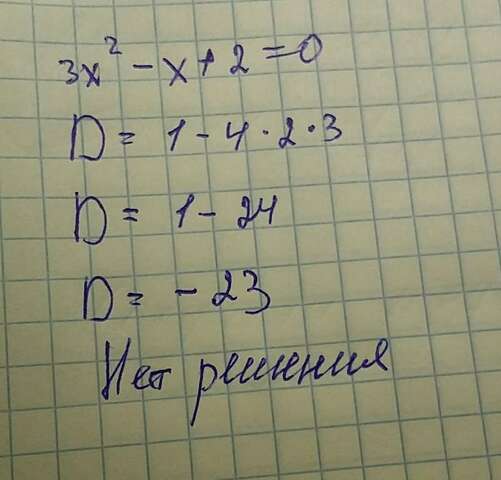 3x² - x + 2 = 0
D = 1 - 4 · 2 · 3
D = 1 - 24
D = - 23
Нет решения